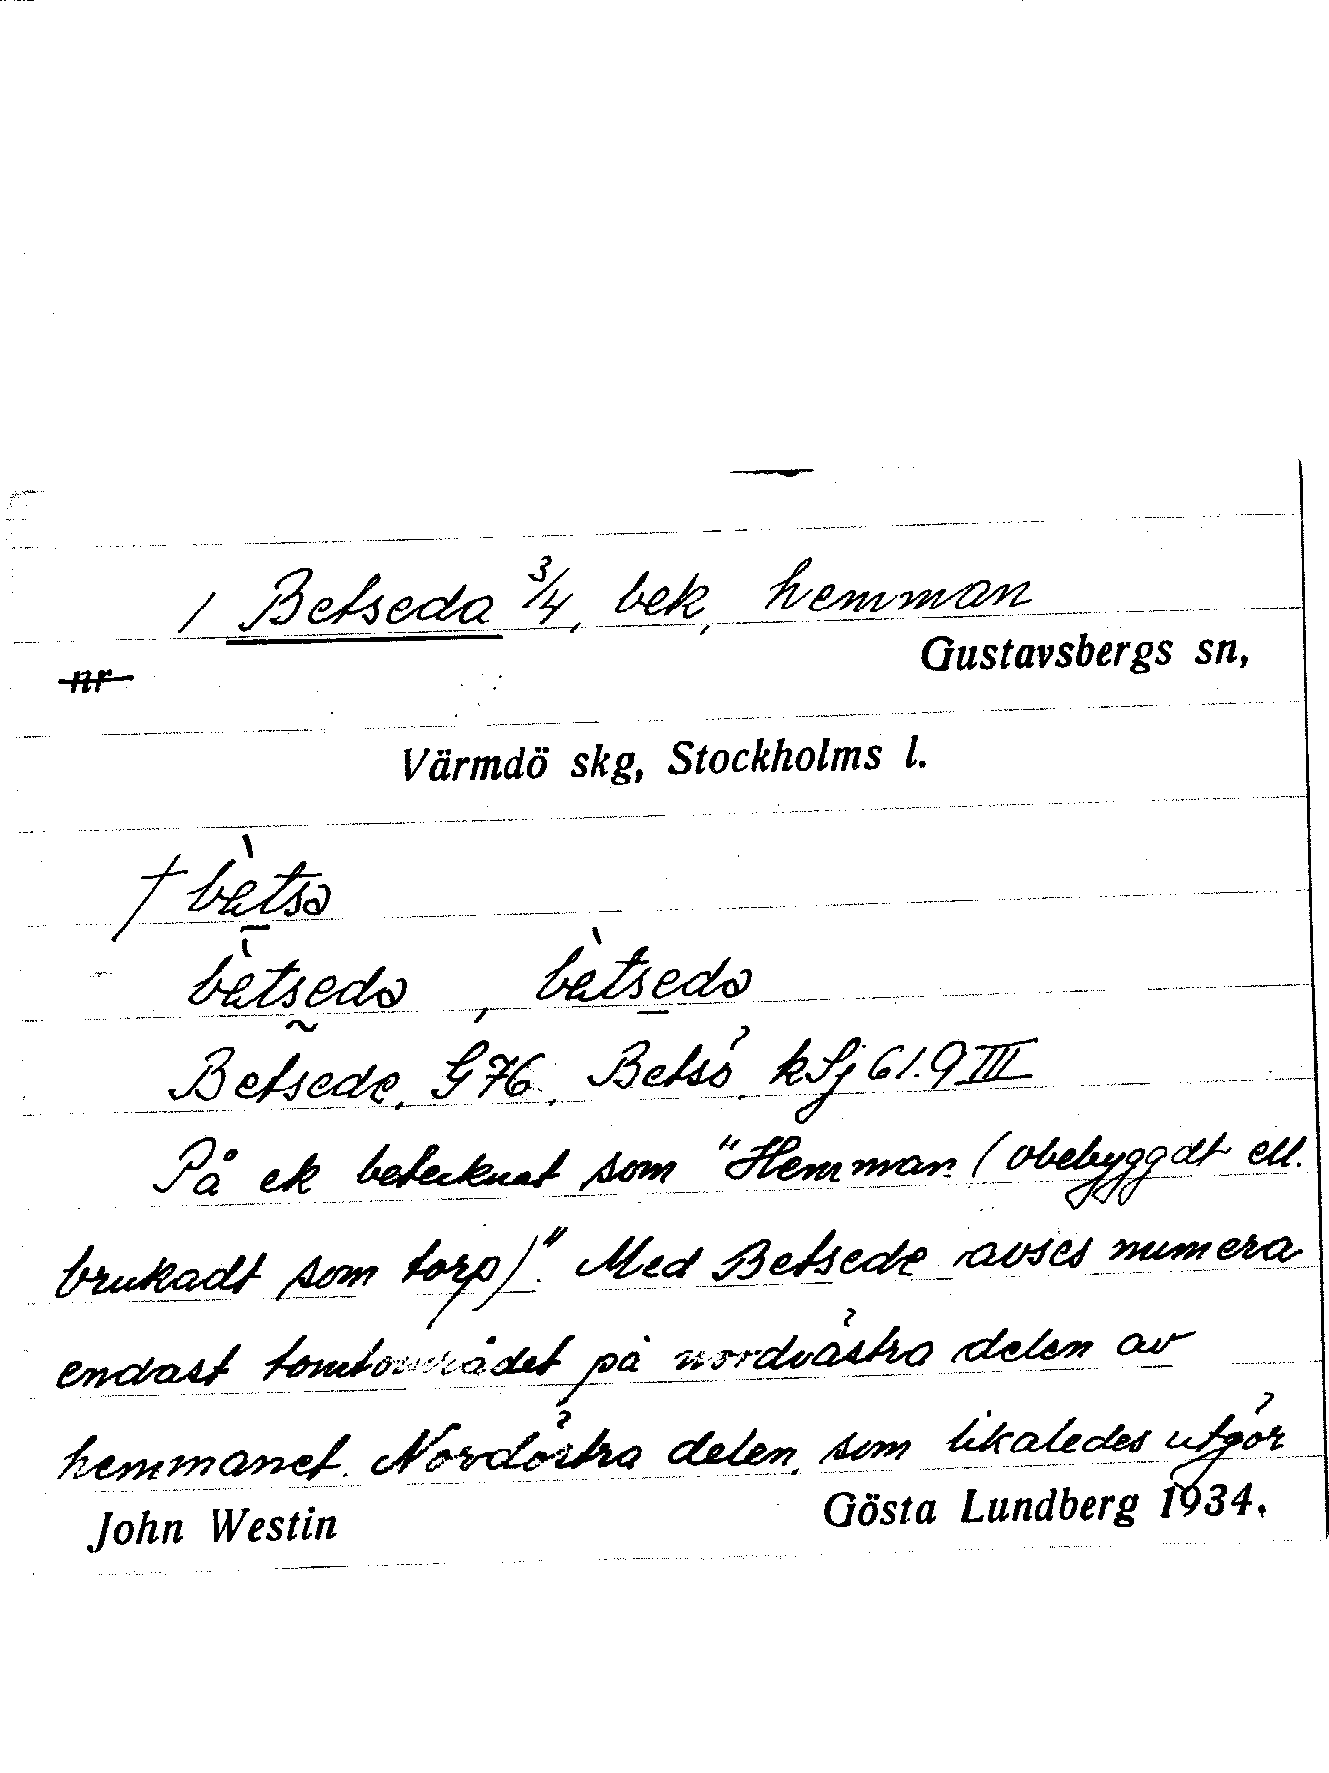 1 Betseda 3/4, bek, hemman
Gustavsbergs sn,
nr
Värmdö skg, Stockholms l.
† bètsa
bètseda, bètseda
Betsede, G 76. Betsö kSj 61.9 III
På ek betecknat som "Hemman (obebyggdt ell.
brukadt som torp)". Med Betsede avses numera
endast tomtområdet på nordvästra delen av
hemmanet. Nordöstra delen, som likaledes utgör
John Westin
Gösta Lundberg 1934.